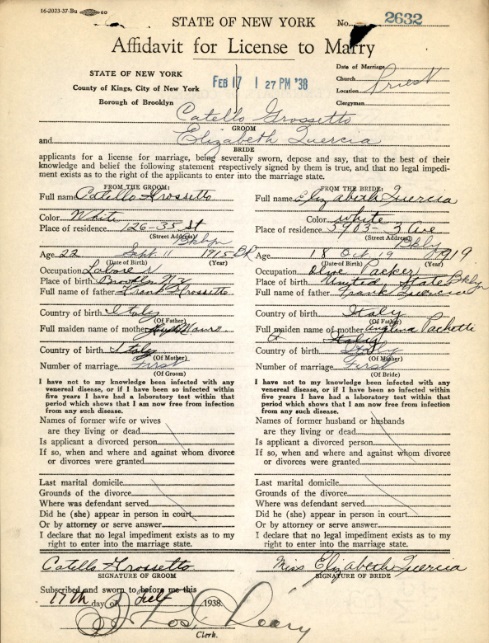 STATE OF NEW YORK
No. 2632
Affidavit for License to Marry
STATE OF NEW YORK
County of Kings, City of New York
Borough of Brooklyn
FEB 17 1 27 PM '38
Date of Marriage
Church
Location
Priest
Clergyman
Catello Grossetto
GROOM
and Elizabeth Quercia
BRIDE
applicants for a license for marriage, being severally sworn, depose and say, that to the best of their
knowledge and belief the following statement respectively signed by them is true, and that no legal impedi-
ment exists as to the right of the applicants to enter into the marriage state.
FROM THE GROOM:
Full name Catello Grossetto
Color White
Place of residence 126-35 St
(Street Address)
Bklyn
Age 22 Sept 11 1915
(Date of Birth) (Year)
Occupation Laborer
Place of birth Brooklyn NY
Full name of father Frank Grossetto
Country of birth Italy
(Of Father)
Full maiden name of mother
Country of birth Italy
(Of Mother)
Number of marriage First
(Of Groom)
I have not to my knowledge been infected with any
venereal disease, or if I have been so infected within
five years I have had a laboratory test within that
period which shows that I am now free from infection
from any such disease.
Names of former wife or wives
are they living or dead
Is applicant a divorced person
If so, when and where and against whom divorce
or divorces were granted
Last marital domicile
Grounds of the divorce
Where was defendant served
Did he (she) appear in person in court
Or by attorney or serve answer
I declare that no legal impediment exists as to my
right to enter into the marriage state.
Catello Grossetto
SIGNATURE OF GROOM
FROM THE BRIDE:
Full name Elizabeth Quercia
Color white
Place of residence 5903-3 Ave
(Street Address)
Bklyn
Age 18 Oct 19 1919
(Date of Birth) (Year)
Occupation Olive Packer
Place of birth United States Bklyn
Full name of father Frank Quercia
Country of birth Italy
(Of Father)
Full maiden name of mother Angelina Pachotti
Country of birth Italy
(Of Mother)
Number of marriage First
(Of Bride)
I have not to my knowledge been infected with any
venereal disease, or if I have been so infected within
five years I have had a laboratory test within that
period which shows that I am now free from infection
from any such disease.
Names of former husband or husbands
are they living or dead
Is applicant a divorced person
If so, when and where and against whom divorce
or divorces were granted
Last marital domicile
Grounds of the divorce
Where was defendant served
Did he (she) appear in person in court
Or by attorney or serve answer
I declare that no legal impediment exists as to my
right to enter into the marriage state.
Miss Elizabeth Quercia
SIGNATURE OF BRIDE
Subscribed and sworn to before me this
17th day of Feb 1938
Clerk.